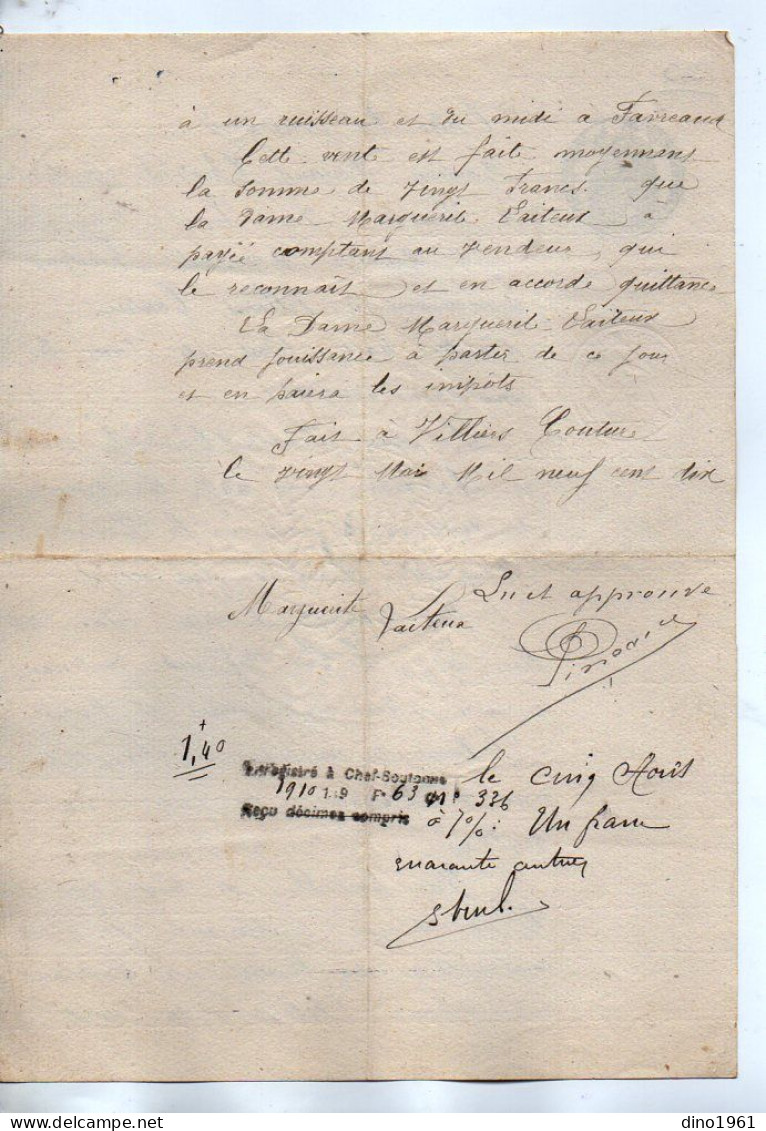 à un ruisseau et du midi à Favreaud
Cett vent est faite moyennant
la somme de vingt francs que
la Dame Marguerit Vaiteux à
payée comptant au vendeur, qui
le reconnaît et en accorde quittance
La Dame Marguerit Vaiteux
prend jouissance à partir de ce jour
et en paiera les impôts
Fait à Villiers Couture
le vingt Mai Mil neuf cent dix
Lu et approuvé
Marguerite Vaiteux
1,40
Enregistré à Chef-Boutonne le cinq Août
1910 F° 63 336
Reçu décimes compris à 7%: Un franc
quarante centimes
dino1961